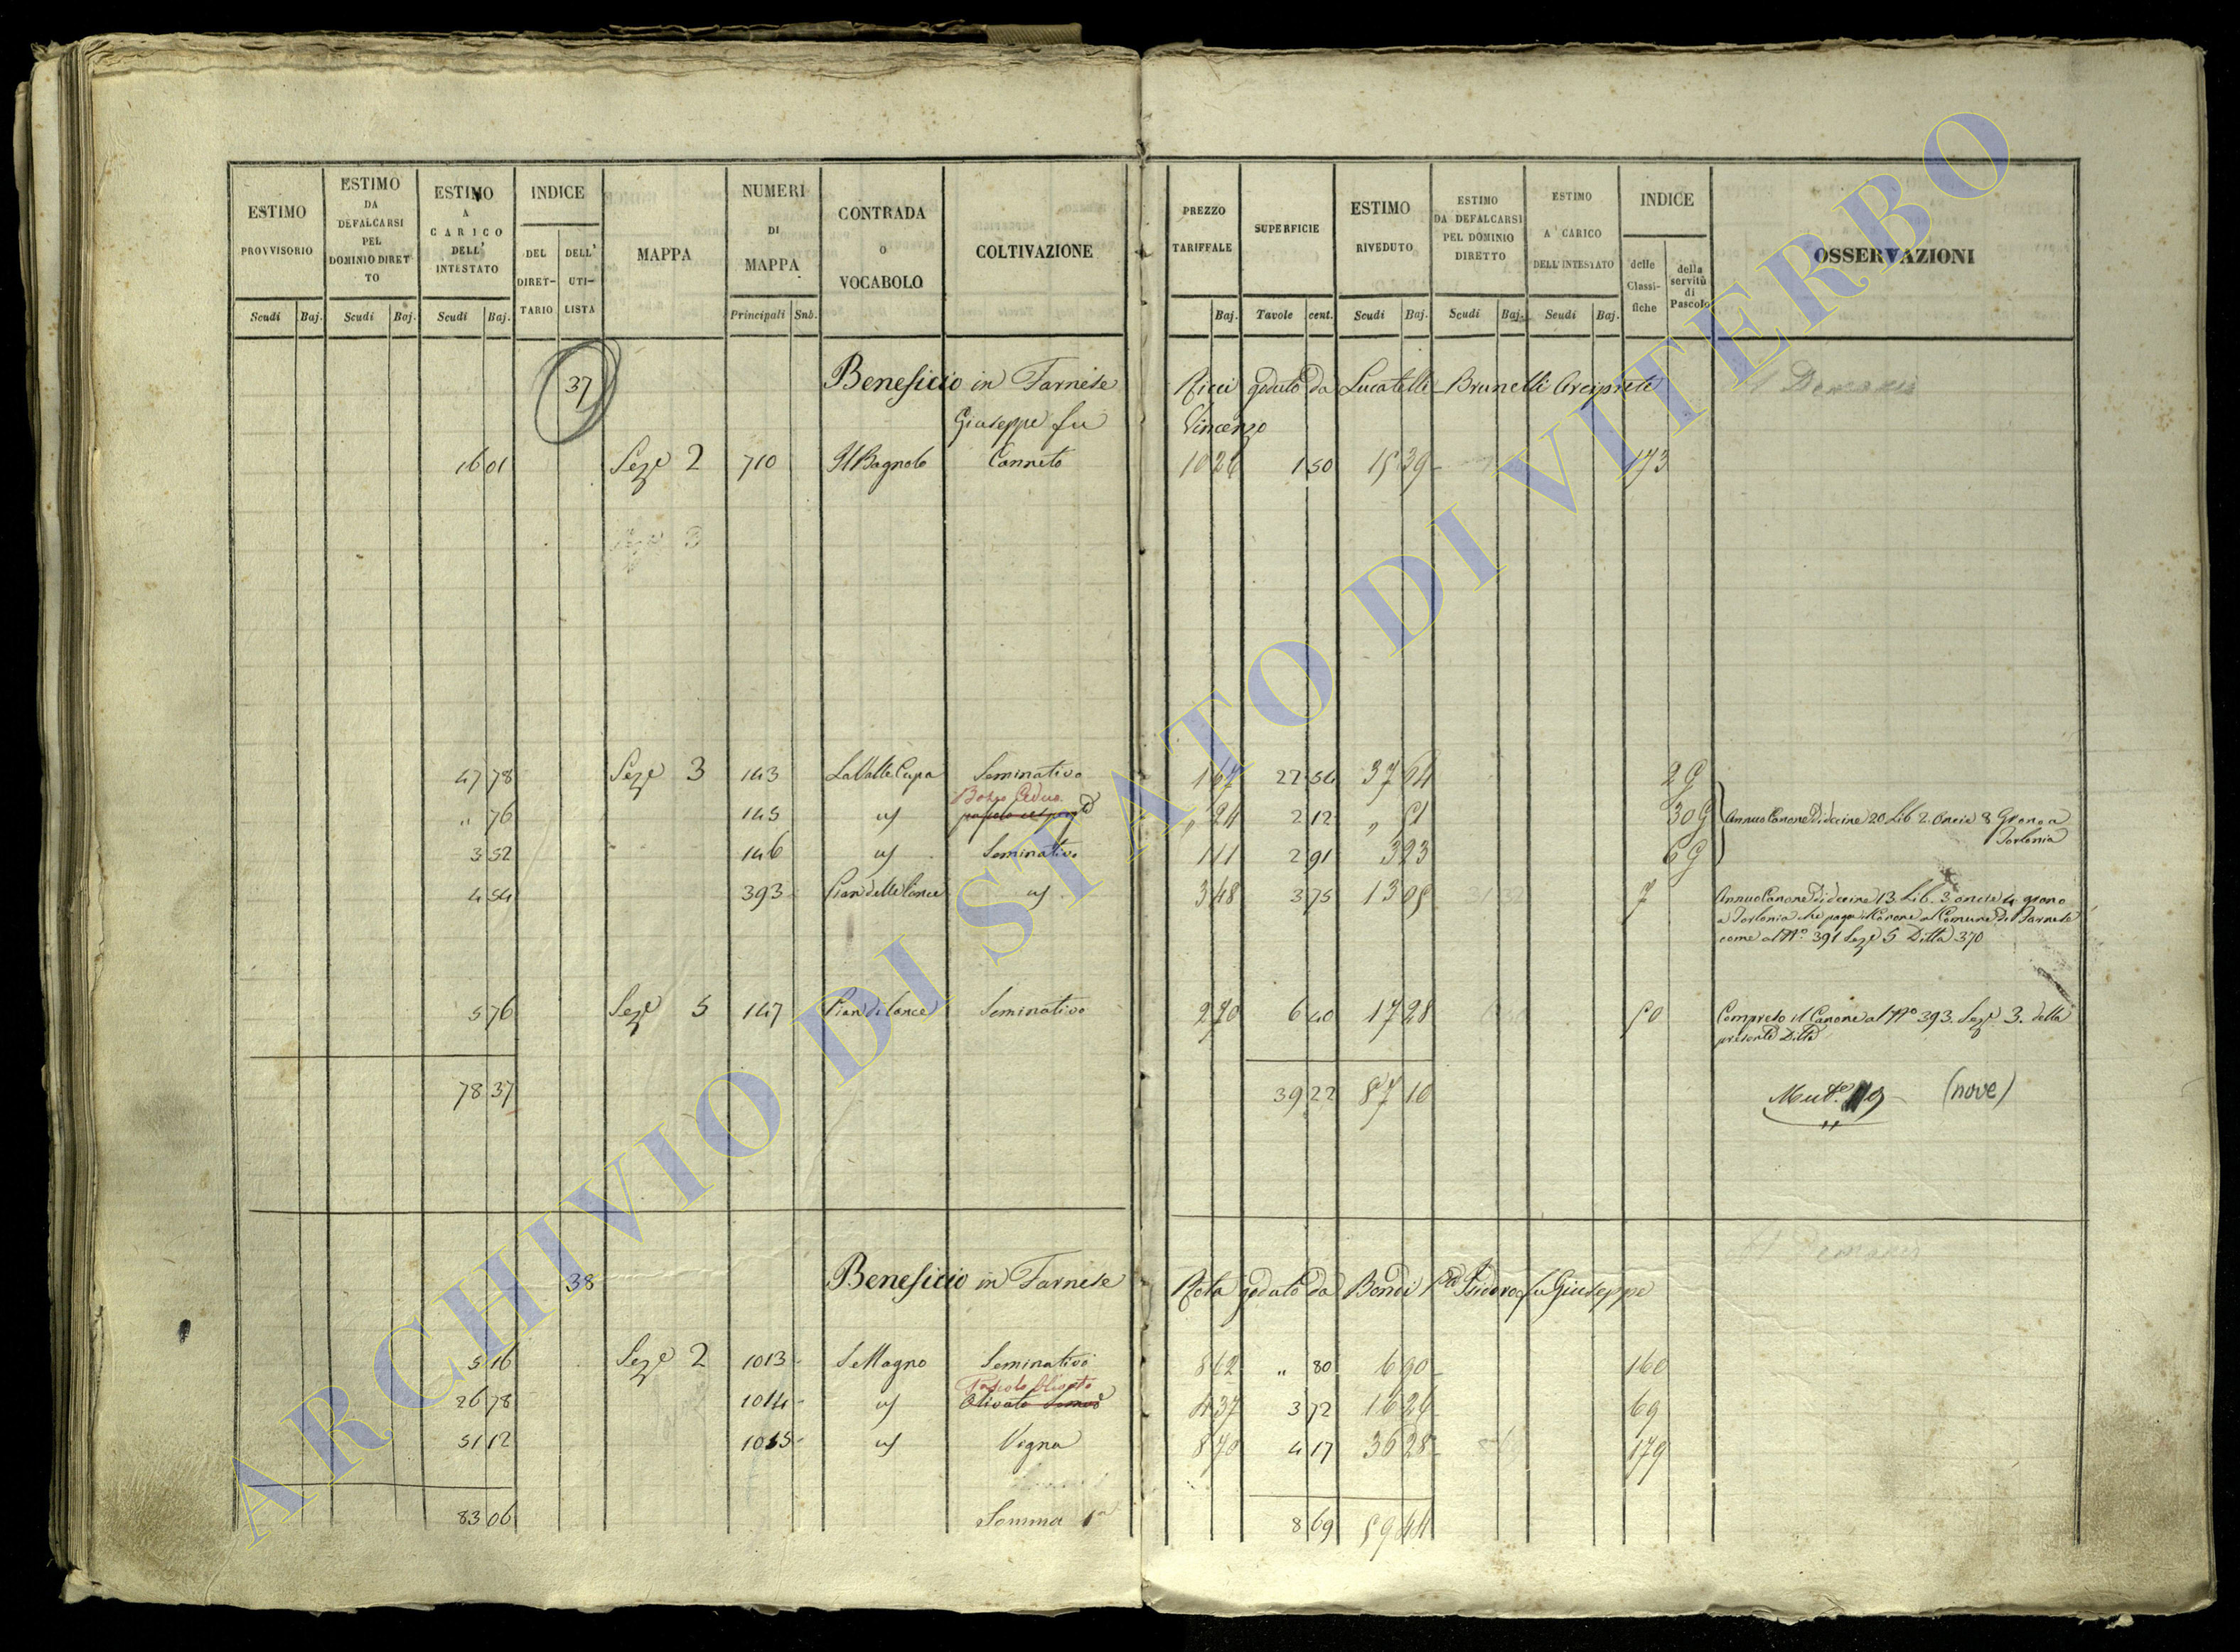 ESTIMO PROVVISORIO
Scudi Baj.
ESTIMO DA DEFALCARSI PEL DOMINIO DIRETTO
Scudi Baj.
ESTIMO A CARICO DELL' INTESTATO
Scudi Baj.
INDICE
DEL DIRET-TARIO
DELL' UTI-LISTA
MAPPA
NUMERI DI MAPPA
Principali Sub.
CONTRADA O VOCABOLO
COLTIVAZIONE
PREZZO TARIFFALE
Baj.
SUPERFICIE
Tavole cent.
ESTIMO RIVEDUTO
Scudi Baj.
ESTIMO DA DEFALCARSI PEL DOMINIO DIRETTO
Scudi Baj.
ESTIMO A CARICO DELL'INTESTATO
Scudi Baj.
INDICE
delle Classi-fiche
della servitù di Pascolo
OSSERVAZIONI
37 Beneficio in Farnese Ricci goduto da Lucatelli Brunelli Arciprete
Giuseppe fu Vincenzo
16 01 Seze 2 710 Il Bagnolo Canneto 10 26 1 50 15 39 173
47 78 Seze 3 143 La Valle Cupa Seminativo 1 67 22 54 37 64 2 G
Bosco Ceduo
„ 76 145 us „ 24 2 12 „ 51 30 G Annuo Canone Di decine 20 Lib 2. Oncie 8 Grano a
Torlonia
3 52 146 us Seminativo 1 11 2 91 3 23 6 G
4 54 393 Pian delle Cance us 3 48 3 75 13 05 7 Annuo Canone Di decine 13. Lib. 3 oncie 4 grano
a Torlonia che paga il Canone al Comune Di Farnese
come al N.° 391 Seze 5 Ditta 370
5 76 Seze 5 147 Pian di Cance Seminativo 2 70 6 40 17 28 50 Compreso il Canone al N° 393. Seze 3. della
presente Ditta
78 37 39 22 87 10 (nove)
38 Beneficio in Farnese Rota goduto da Bondi Isidoro fu Giuseppe
5 16 Seze 2 1013 S. Magno Seminativo 8 62 „ 80 6 90 160
Pascolo Olivato
26 78 1014 us Olivato 4 37 3 72 16 26 69
51 12 1015 us Vigna 8 70 4 17 36 28 179
83 06 Somma 1a 8 69 59 44
ARCHIVIO DI STATO DI VITERBO